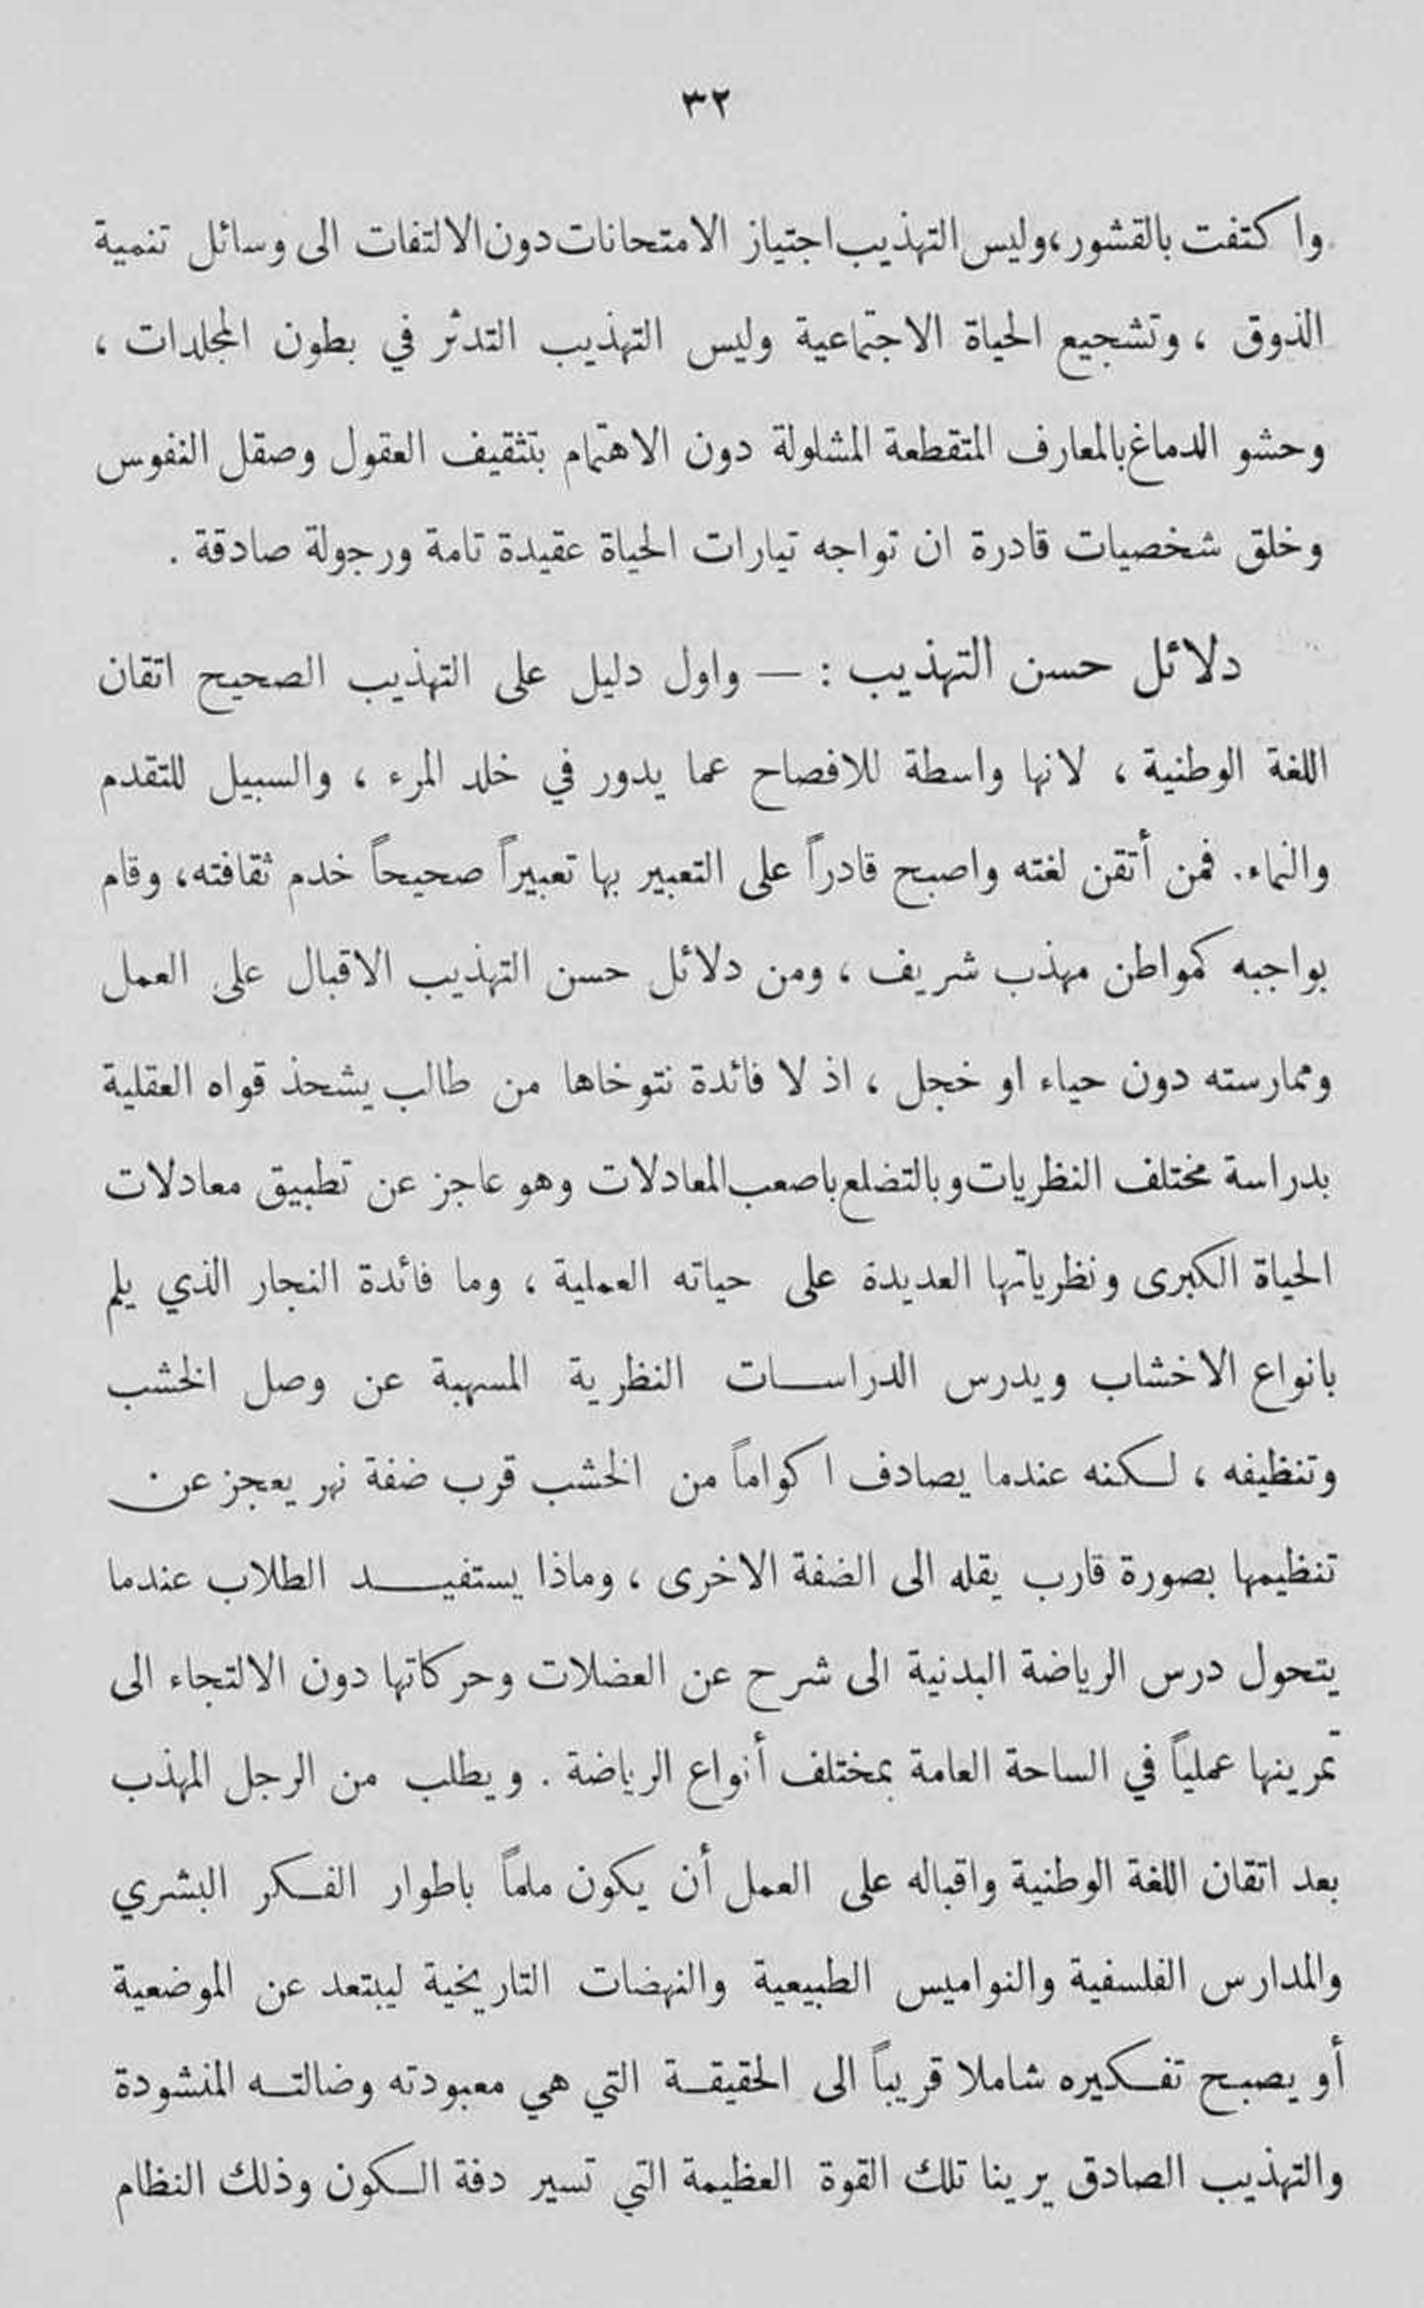 ٣٢
واكتفت بالقشور، وليس التهذيب اجتياز الامتحانات دون الالتفات الى وسائل تنمية
الذوق ، وتشجيع الحياة الاجتماعية وليس التهذيب التدثر في بطون المجلدات ،
وحشو الدماغ بالمعارف المتقطعة المشلولة دون الاهتمام بتثقيف العقول وصقل النفوس
وخلق شخصيات قادرة ان تواجه تيارات الحياة عقيدة تامة ورجولة صادقة .
دلائل حسن التهذيب : — واول دليل على التهذيب الصحيح اتقان
اللغة الوطنية ، لانها واسطة للافصاح عما يدور في خلد المرء ، والسبيل للتقدم
والنماء. فمن أتقن لغته واصبح قادراً على التعبير بها تعبيراً صحيحاً خدم ثقافته، وقام
بواجبه كمواطن مهذب شريف ، ومن دلائل حسن التهذيب الاقبال على العمل
وممارسته دون حياء او خجل ، اذ لا فائدة نتوخاها من طالب يشحذ قواه العقلية
بدراسة مختلف النظريات وبالتضلع باصعب المعادلات وهو عاجز عن تطبيق معادلات
الحياة الكبرى ونظرياتها العديدة على حياته العملية ، وما فائدة النجار الذي يلم
بانواع الاخشاب ويدرس الدراسات النظرية المسهبة عن وصل الخشب
وتنظيفه ، لكنه عندما يصادف اكواماً من الخشب قرب ضفة نهر يعجز عن
تنظيمها بصورة قارب يقله الى الضفة الاخرى ، وماذا يستفيد الطلاب عندما
يتحول درس الرياضة البدنية الى شرح عن العضلات وحركاتها دون الالتجاء الى
تمرينها عملياً في الساحة العامة بمختلف أنواع الرياضة . ويطلب من الرجل المهذب
بعد اتقان اللغة الوطنية واقباله على العمل أن يكون ملماً باطوار الفكر البشري
والمدارس الفلسفية والنواميس الطبيعية والنهضات التاريخية ليبتعد عن الموضعية
أو يصبح تفكيره شاملا قريباً الى الحقيقة التي هي معبودته وضالته المنشودة
والتهذيب الصادق يرينا تلك القوة العظيمة التي تسير دفة الكون وذلك النظام